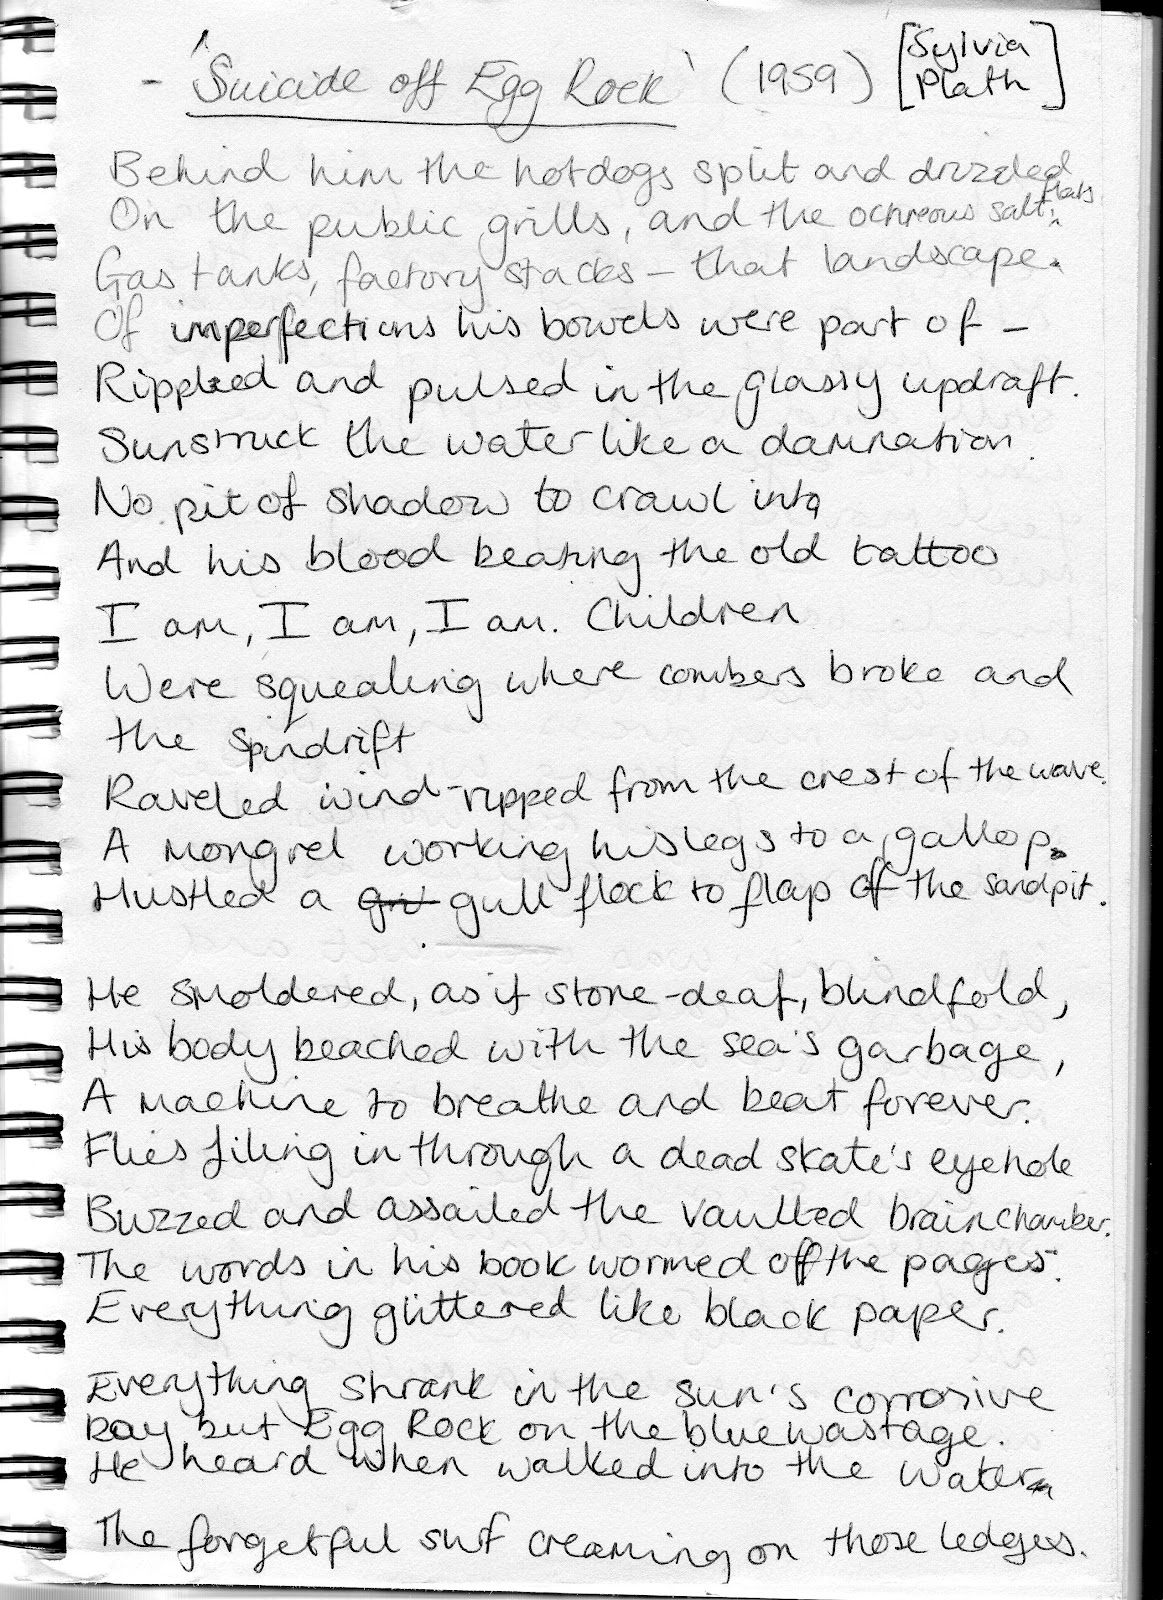 - 'Suicide off Egg Rock' (1959) [Sylvia Plath]
Behind him the hotdogs split and drizzled
On the public grills, and the ochreous salt flats,
Gas tanks, factory stacks - that landscape.
Of imperfections his bowels were part of -
Rippled and pulsed in the glassy updraft.
Sunstruck the water like a damnation.
No pit of shadow to crawl into,
And his blood beating the old tattoo
I am, I am, I am. Children
Were squealing where combers broke and
the spindrift
Raveled wind-ripped from the crest of the wave.
A mongrel working his legs to a gallop.
Hustled a gull flock to flap off the sandpit.
He smoldered, as if stone-deaf, blindfold,
His body beached with the sea's garbage,
A machine to breathe and beat forever.
Flies filing in through a dead skate's eyehole
Buzzed and assailed the vaulted brainchamber.
The words in his book wormed off the pages.
Everything glittered like black paper.
Everything shrank in the sun's corrosive
Ray but Egg Rock on the blue wastage.
He heard when walked into the water
The forgetful surf creaming on those ledges.